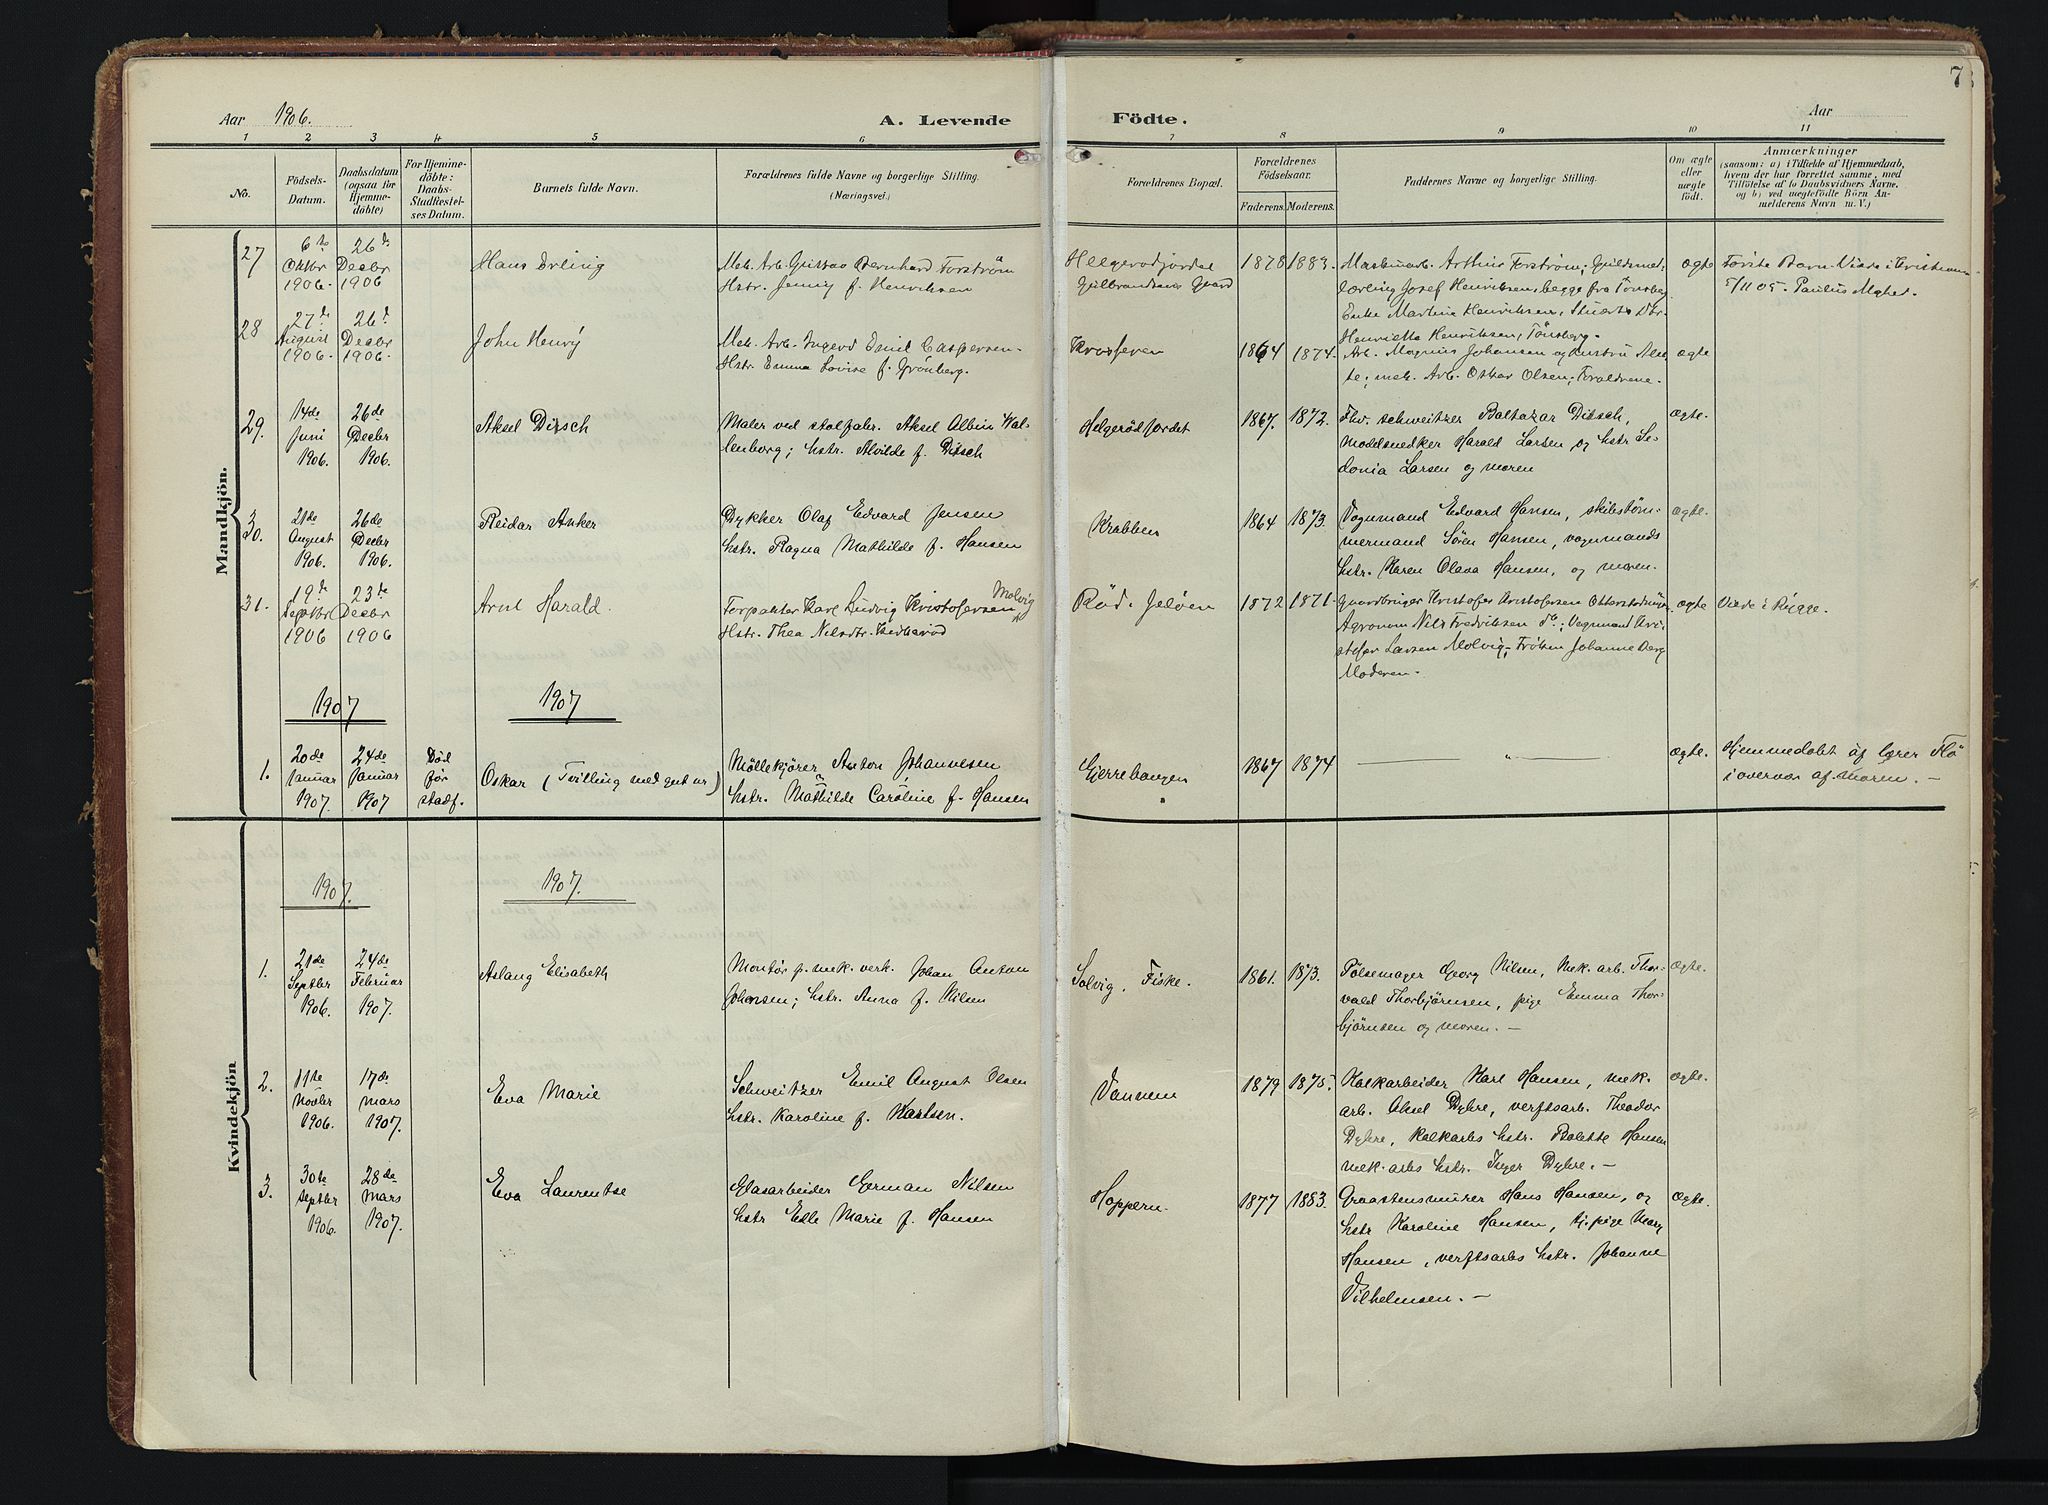 7
Aar 1906.
A. Levende Födte.
Aar
1 2 3 4 5 6 7 8 9 10 11
No.
Födsels-
Datum.
Daabsdatum
(ogsaa for
Hjemme-
döbte)
For Hjemme-
döbte:
Daabs-
Stadfæstel-
ses Datum.
Barnets fulde Navn.
Forældrenes fulde Navne og borgerlige Stilling.
(Næringsvei.)
Forældrenes Bopæl.
Forældrenes
Födselsaar.
Faderens. Moderens.
Faddernes Navne og borgerlige Stilling.
Om ægte
eller
uægte
födt.
Anmærkninger
(saasom: a) i Tilfælde af Hjemmedaab,
hvem der har forrettet samme, med
Tilföielse af to Daabsvidners Navne.
og b) ved uægtefödte Börn An-
melderens Navn m. V.)
Mandkjön.
27
6te
Oktbr
1906.
26de
Decbr
1906
Hans Erling
Mek. Arb. Gustav Bernhard Forström
Hstr. Jenny f. Henriksen
Helgerödjordet
Gulbrandsens Gaard
1878 1883.
Maskinarb. Arthur Forström; Guldsmed-
lærling Josef Henriksen, begge fra Tönsberg
Enke Martine Henriksen,
Henriette Henriksen, Tönsberg.
ægte
Förste Barn. Viede i Kristiania
5/11 05. Paulus Meht.
28
27de
August
1906
26de
Decbr
1906.
John Henry
Mek. Arb. Ingvard Emil Caspersen
Hstr. Emma Lovise f. Grönberg.
Krosseren
1864 1874.
Arb. Magnus Johansen og hustru
mek. Arb. Oskar Olsen; Forældrene.
ægte
29.
14de
Juni
1906.
26de
Decbr
1906.
Aksel Dirsch
Maler ved stolfabr. Aksel Albin Wal-
lenborg; hstr. Alvilde f. Dirsch
Helgerödjordet
1867. 1872.
Fhv. schweitzer Baltazar Dirsch,
Modelsnedker Harald Larsen og hstr Se-
donia Larsen og moren
ægte.
30.
21de
August
1906.
26de
Decbr
1906.
Reidar Anker
Dykker Olaf Edvard Jensen
hstr. Ragna Mathilde f. Hansen
Krabben
1864 1873.
Vognmand Edvard Hansen, skibstöm-
mermand Sören Hansen, vognmands
hstr. Karen Olava Hansen, og moren.
ægte.
31.
19de
Septbr
1906
23de
Decbr
1906
Arnt Harald.
Forpakter Karl Ludvig Kristofersen Molvig
Hstr. Thea Nilsdtr.
Röd. Jelöen
1872 1871.
Gaardbruger Kristofer Kristofersen
Agronom Nils Fredriksen do; Vognmand Kri-
stofer Larsen Molvig; Fröken Johanne Berg
Moderen.
ægte
Viede i Rygge.
1907 1907
1.
20de
Januar
1907.
24de
Januar
1907
Död
för
stadf.
Oskar (Tvilling med gut nr.)
Möllekjörer Anton Johannesen
hstr. Mathilde Caroline f. Hansen
Gjerrebaugen
1867 1874
"
ægte.
Hjemmedöbt af lærer Flö
i overvær af moren. —
Kvindekjön
1907. 1907.
1.
21de
Septbr
1906.
24de
Februar
1907.
Aslaug Elisabeth
Montör p. mek. verk. Johan Anton
Johansen; hstr. Anna f. Nilsen
Solvig, Fiske.
1861. 1873.
Pölsemager Georg Nilsen, Mek. arb. Thor-
vald Thorbjörnsen, pige Emma Thor-
björnsen og moren. —
ægte.
2.
11te
Novbr
1906.
17de
Mars
1907.
Eva Marie
Schweitzer Emil August Olsen
hstr. Karoline f. Karlsen.
Vannem
1879 1875.
Kalkarbeider Karl Hansen, mek.
arb. Aksel Dyhre, verftsarb. Theodor
Dyhre, kalkarbs hstr. Bolette Hansen
mek. arbs hstr. Inger Dyhre. —
ægte.
3.
30te
Septbr
1906.
28de
Mars
1907.
Eva Laurentse
Glasarbeider Herman Nilsen
hstr Edle Marie f. Hansen
Hoppern.
1877 1883.
Graastensmurer Hans Hansen, og
hstr Karoline Hansen, tj. pige Mary
Hansen, verftsarbs hstr. Johanne
Vilhelmsen. —
ægte.